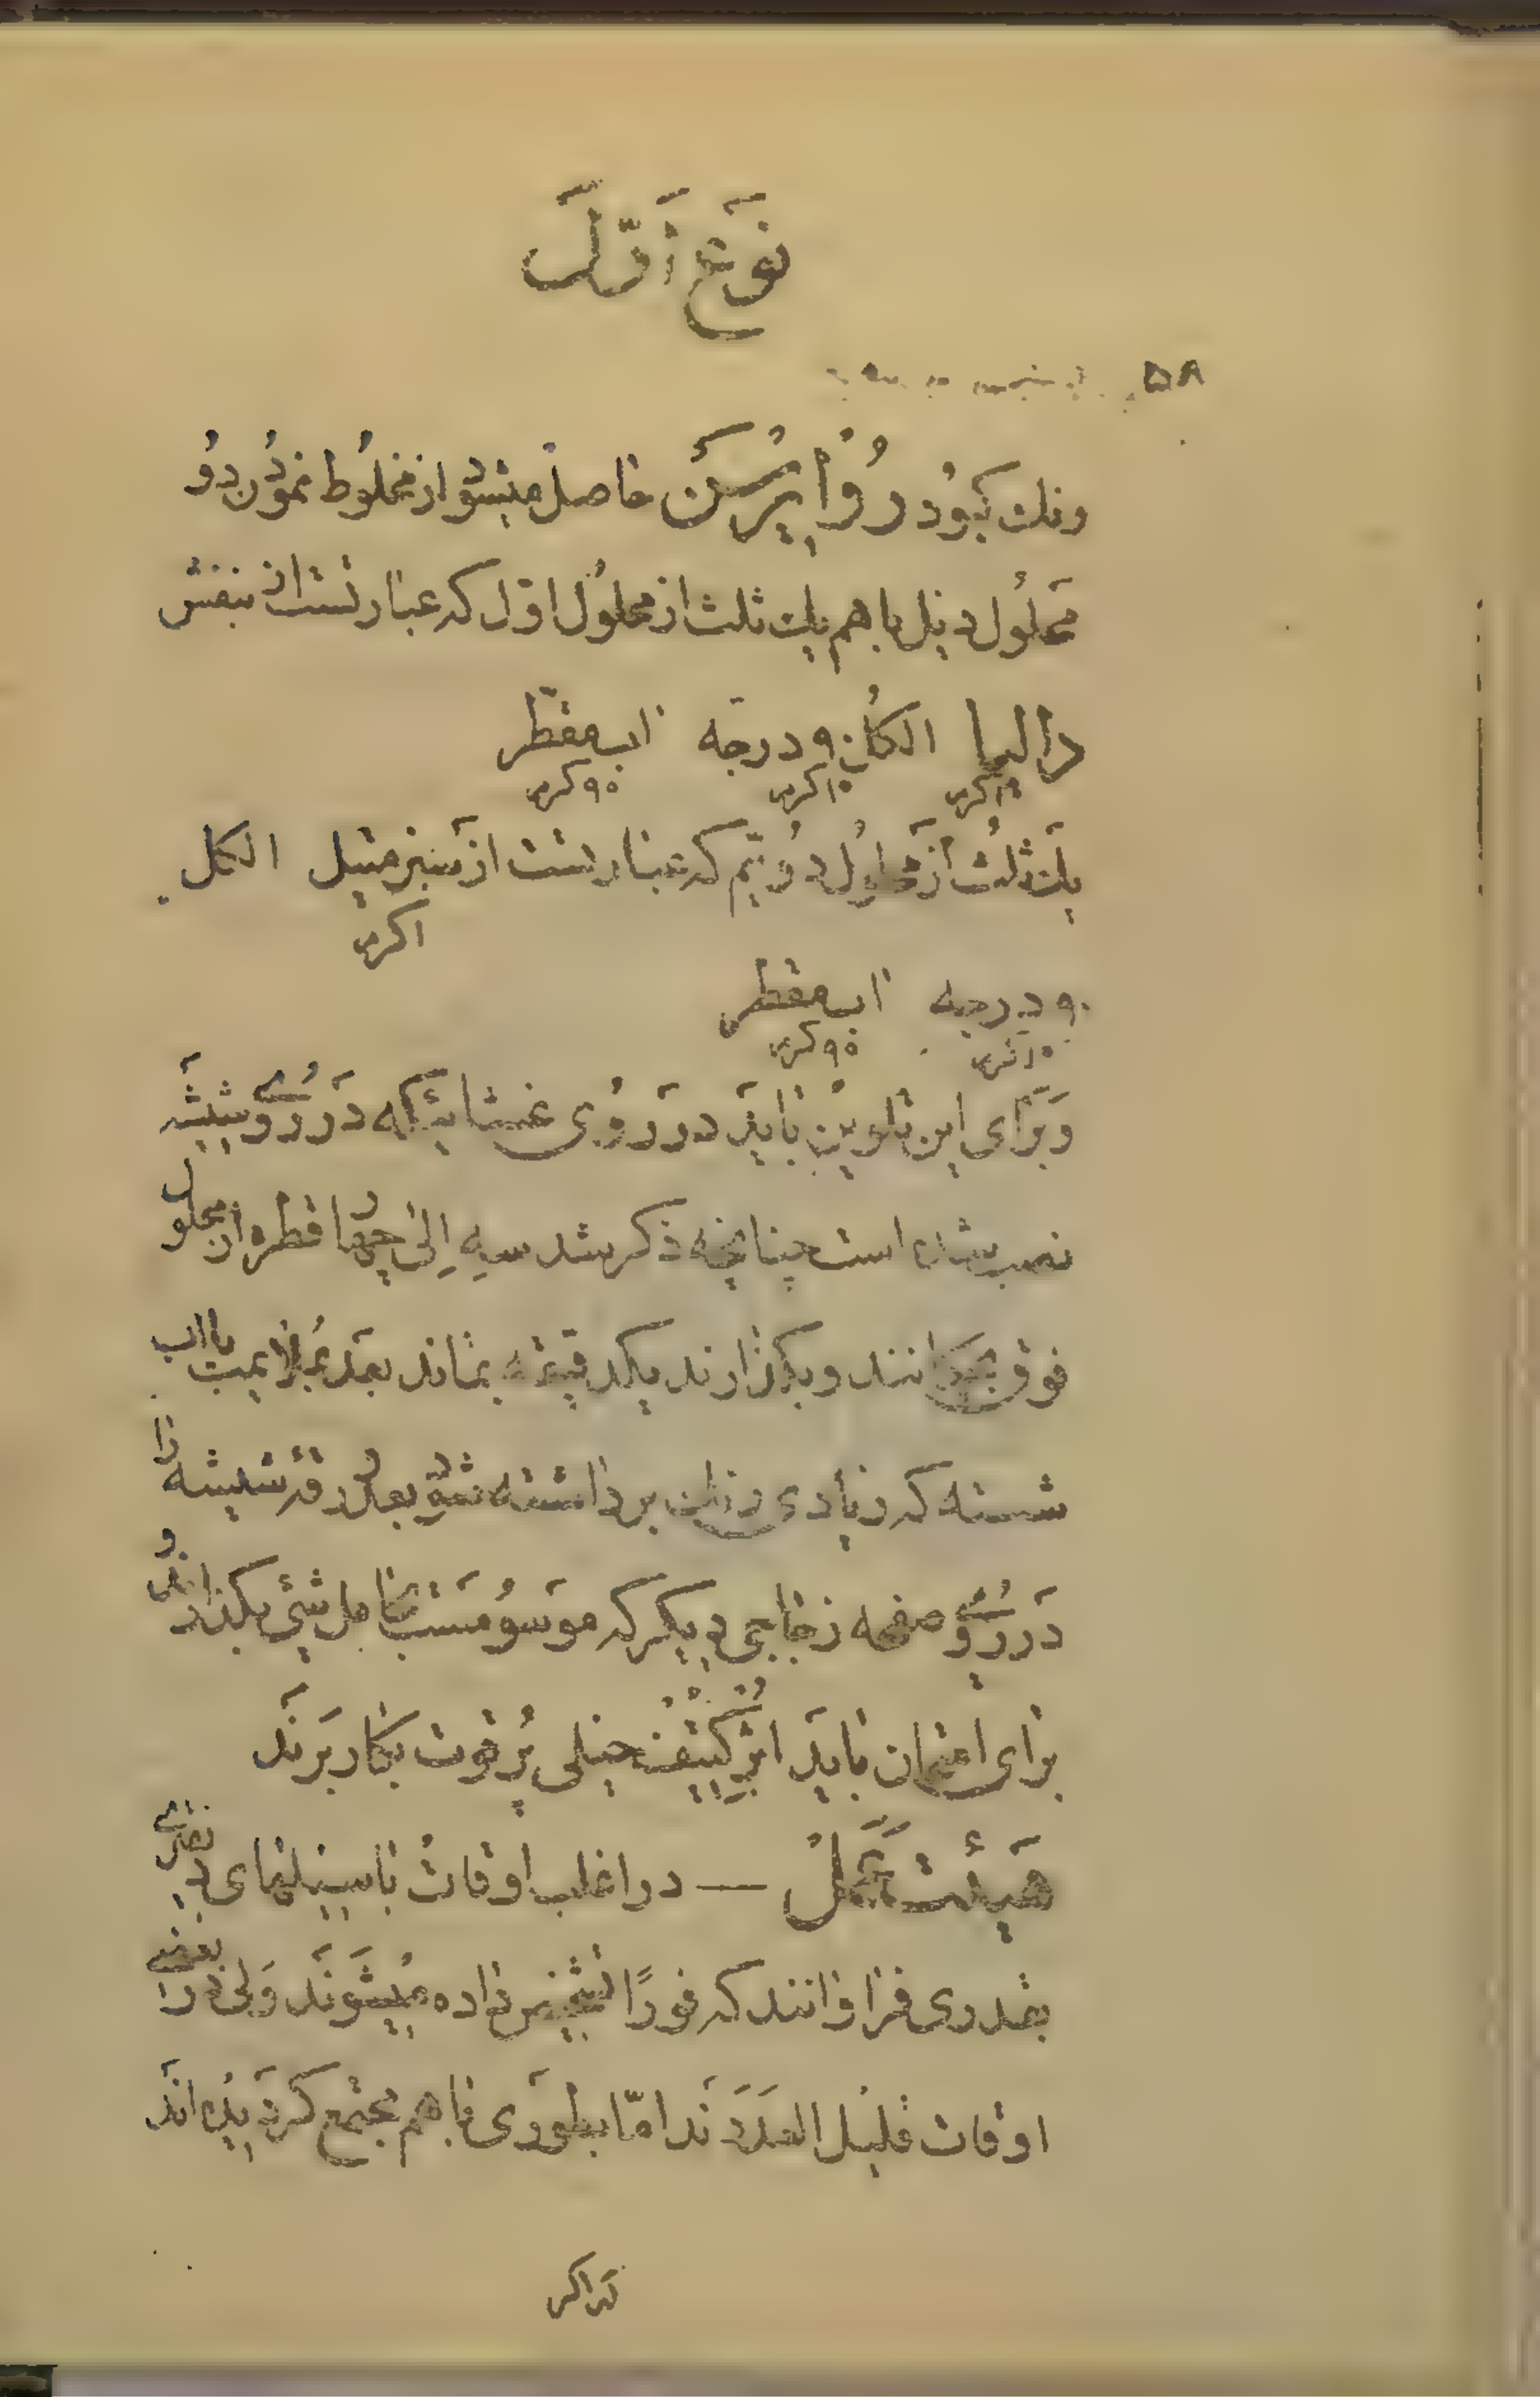 نَوعِ اَوّلَ
۵۸
رنك كبُود رُوُاپرُسَن حاصل ميشود از مخلوُط نموُدن دوُ
مَحلُول ذيل با هم يك ثلث از محلوُل اوّل كه عبارتست از بنفش
داليا الكل ۹۰ درجَه اب مقطّر
۱ كرم ۱۰ كرم ۹۰ كرم
يك ثلُث از محلوُل دوُيّم كه عبارتست از سَبز متيل الكل
۱ كرم
۹۰ درجه اب مقطر
۱۰ كرم ۹۰ كرم
وَبَراى اين تلوين بايَد دَر رُوى غشائيكه دَر رُوى شيشَه
نصب شده است چنانچه ذكر شد سِه اِلىٰ چهار قطره از محلول
فوق بچكانند و بكذارند يكدقيقه بماند بعَد بمُلايمت با اب
شسته كه زيادى رنك برداشته شود بعد ورقه شيشه را
دَر رُوى صفحه زجاجى ديكر كه موسوُمَست بحامل شيئ بكذارند و
براى امتحان بايَد ابژكتيف خيلى پُر قوت بكار برَند
هَيئت مَحَلّ — در اغلب اوقات باسيلهاى ديفترى
بقدرى فراوانند كه فورًا تشخيص داده ميشوَنَد وَلى در بعضى
اوقات قليل العدَدَند امّا بطورى با هم مجتمع كرديده اند